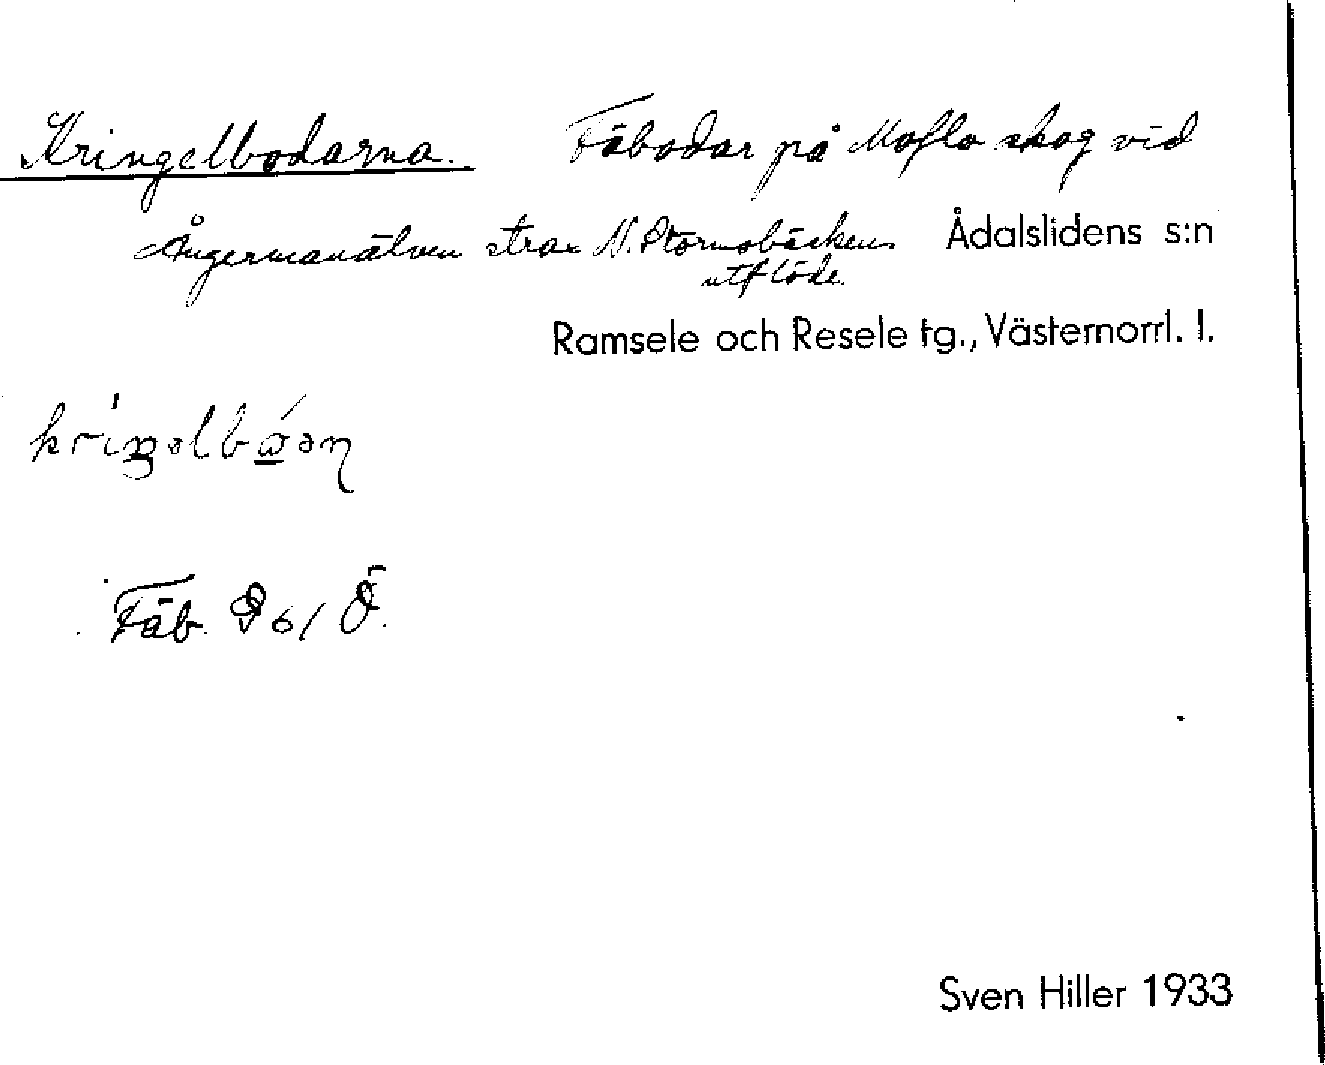 Kringelbodarna. Fäbodar på Moflo skog vid
Ångermanälven strax N. Stormobäckens Ådalslidens s:n
utflöde.
Ramsele och Resele tg., Västernorrl. l.
Fäb.
Sven Hiller 1933